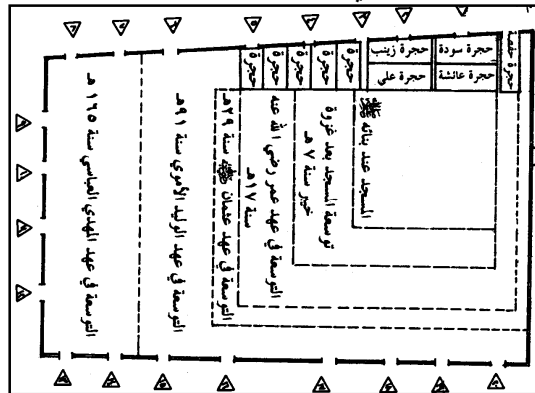 حجرة حفصة
حجرة سودة
حجرة زينب
حجرة عائشة
حجرة علي
حجرة
حجرة
حجرة
حجرة
حجرة
المسجد عند بنائه ﷺ
توسعة المسجد بعد غزوة
خيبر سنة ٧ هـ
التوسعة في عهد عمر رضي الله عنه
سنة ١٧هـ
التوسعة في عهد عثمان ﷺ سنة ٢٩هـ
التوسعة في عهد الوليد الأموي سنة ٩١هـ
التوسعة في عهد المهدي العباسي سنة ١٦٥ هـ